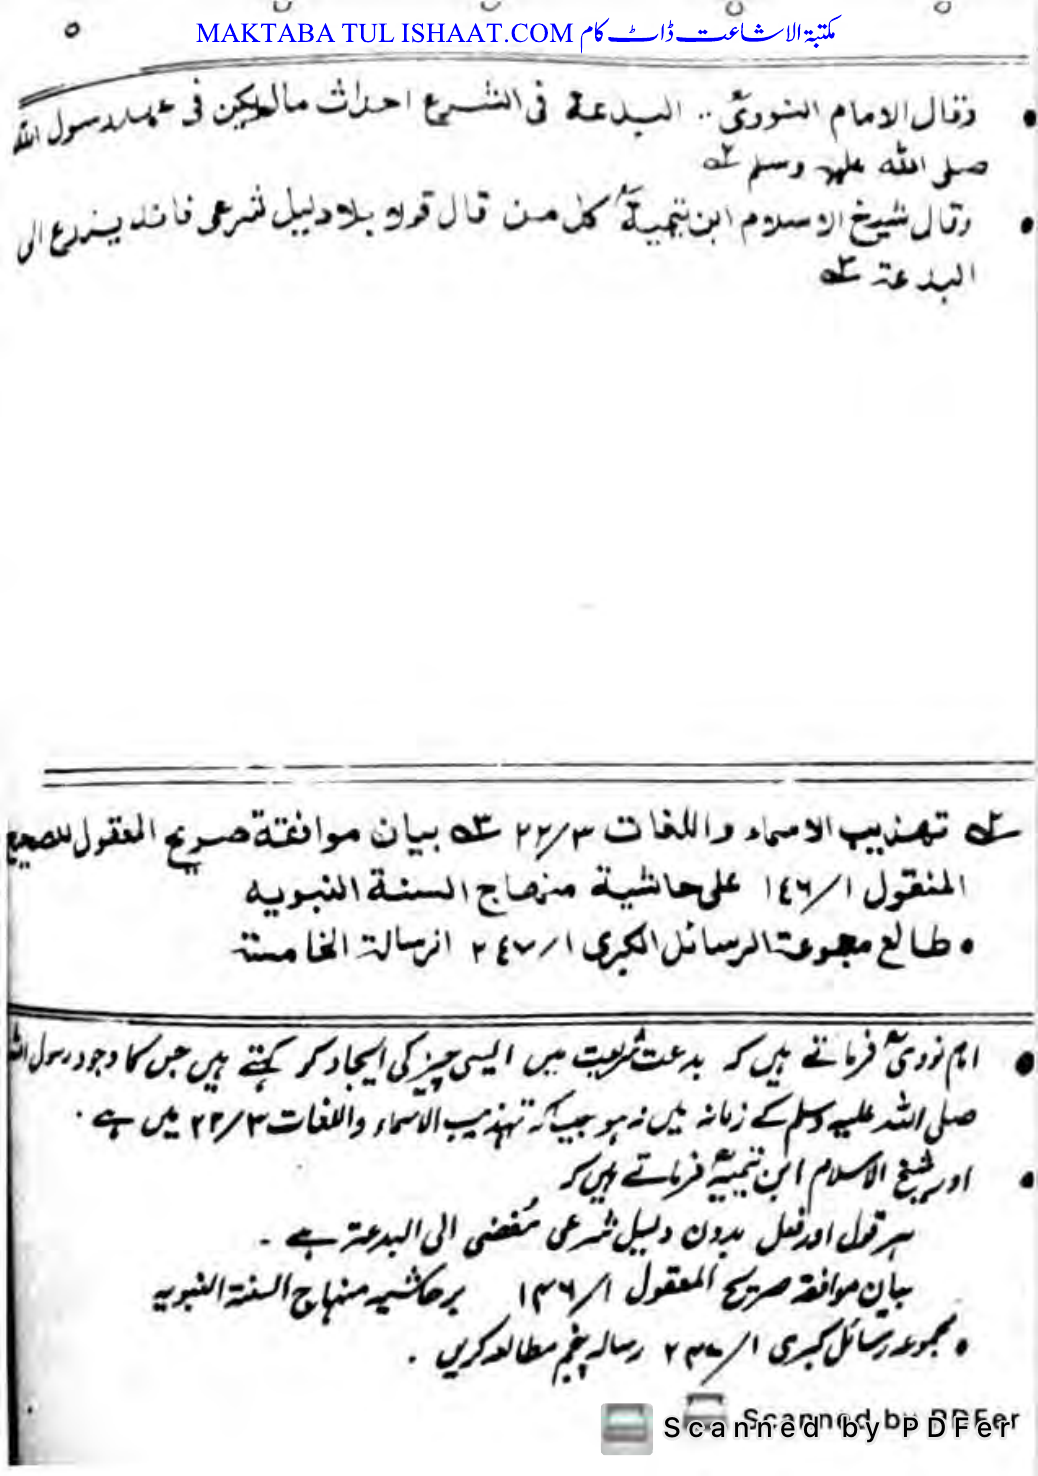 ۵
MAKTABA TUL ISHAAT.COM مکتبۃ الاشاعت ڈاٹ کام
• وقال الامام النوویؒ .. البدعة فی الشرع احداث مالم یکن فی عهد رسول اللہ
صلی اللہ علیہ وسلم ۲؎
• وقال شیخ الاسلام ابن تیمیةؒ کل من قال قولا بلا دلیل شرعی فانه ینزع الی
البدعة ۳؎
۲؎ تهذیب الاسماء واللغات ۲۲/۳ ۳؎ بیان موافقة صریح المعقول للصحیح
المنقول ۱٤٦/۱ علی حاشیة منهاج السنة النبویه
• طالع مجموعة الرسائل الکبری ۲٤۷/۱ الرسالة الخامسة
• امام نوویؒ فرماتے ہیں کہ بدعت شریعت میں ایسی چیز کی ایجاد کو کہتے ہیں جس کا وجود رسول اللہ
صلی اللہ علیہ وسلم کے زمانہ میں نہ ہو جیسا کہ تہذیب الاسماء واللغات ۲۲/۳ میں ہے .
• اور شیخ الاسلام ابن تیمیہؒ فرماتے ہیں کہ
ہر قول اور فعل بدون دلیل شرعی مُفضی الی البدعۃ ہے ۔
بیان موافقۃ صریح المعقول ۱۴۶/۱ برحاشیہ منہاج السنۃ النبویہ
• مجموعہ رسائل کبری ۲۴۷/۱ رسالہ پنجم مطالعہ کریں .
Scanned by PDFer
Scanned by PDFer